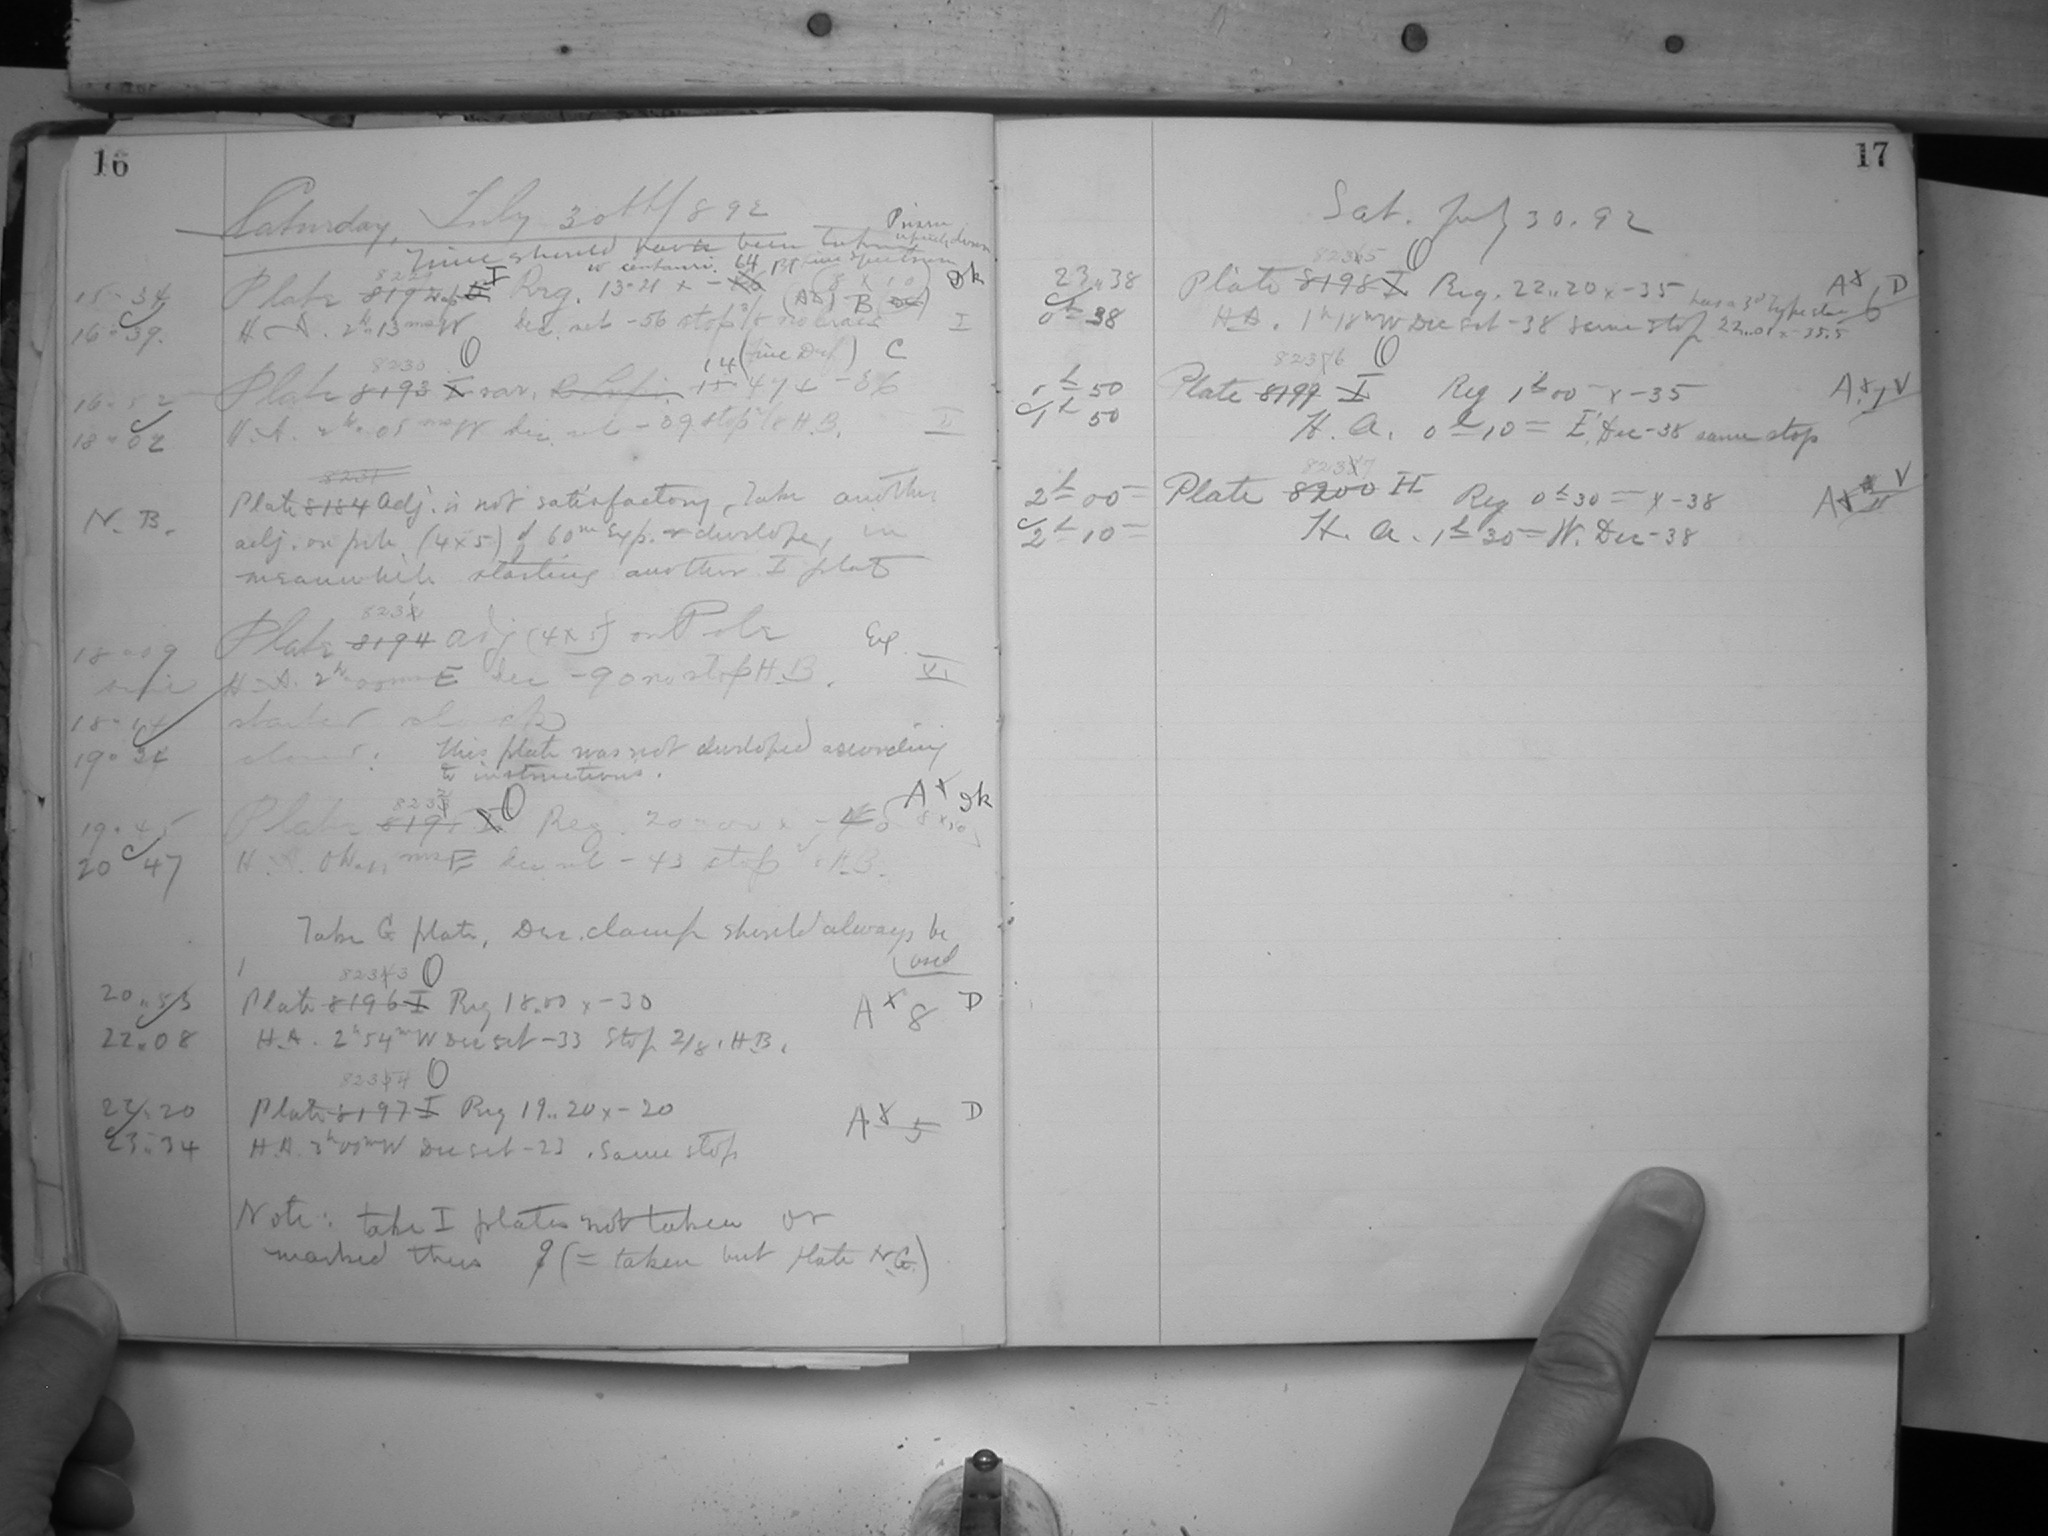 16
Saturday, July 30th/892
Prism upside down
Time should have been taken
ω centauri. 64 fine spectrum
8229
15 34 Plate 8192 I Reg. 13 21 x - (8 x 10) Dk
16 39. H.A. 2h 13m W Dec. set -56 stop I
8230 O 14 (fine Def) C
16 52 Plate 8193 I var. 15 47 x -36
18 02 H.A. 2h 05m W Dec. set -39 stop H.B. II
8231
N.B. Plate 8184 Adj. is not satisfactory, Take another
adj. on pole (4x5) of 60m Exp. & develope, in
meanwhile starting another I plate
8231
18 09 Plate 8194 adj (4x5) on Pole Exp.
H.A. 2h 00m E Dec -90 no stop H.B. VI
18 14
19 34 This plate was not developed according
to instructions.
8232 O A* Dk
19 45 Plate 819 I Reg. 20 00 x 8 x 10
20 47 H.A. E Dec set -43 stop H.B.
Take G plate, Dec. clamp should always be
used
8233 O
20 53 Plate 8196 I Reg 18.00 x -30 A* 8 D
22.08 H.A. 2h 54m W Dec set -33 Stop 2/8. H.B.
8234 O
22 20 Plate 8197 I Reg 19..20 x -20 A* 5 D
23 34 H.A. 3h 00m W Dec set -23 . Same stop
Note: take I plates not taken or
marked thus (= taken but plate N.G.)
17
Sat. July 30.92
8235 O
23..38 Plate 8198 I Reg. 22..20 x -35 A*, D
0h 38 H.A. 1h 18m W Dec set -38 same stop 22..01 x -35.5 6
8236 O
0h 50 Plate 8199 I Reg 1h 00 x -35 A*, V
1h 50 H.A. 0h 10 = E. Dec -38 same stop
8237
2h 00 Plate 8200 II Reg 0h 30 = x -38 A* V
2h 10 H.A. 1h 30 = W. Dec -38